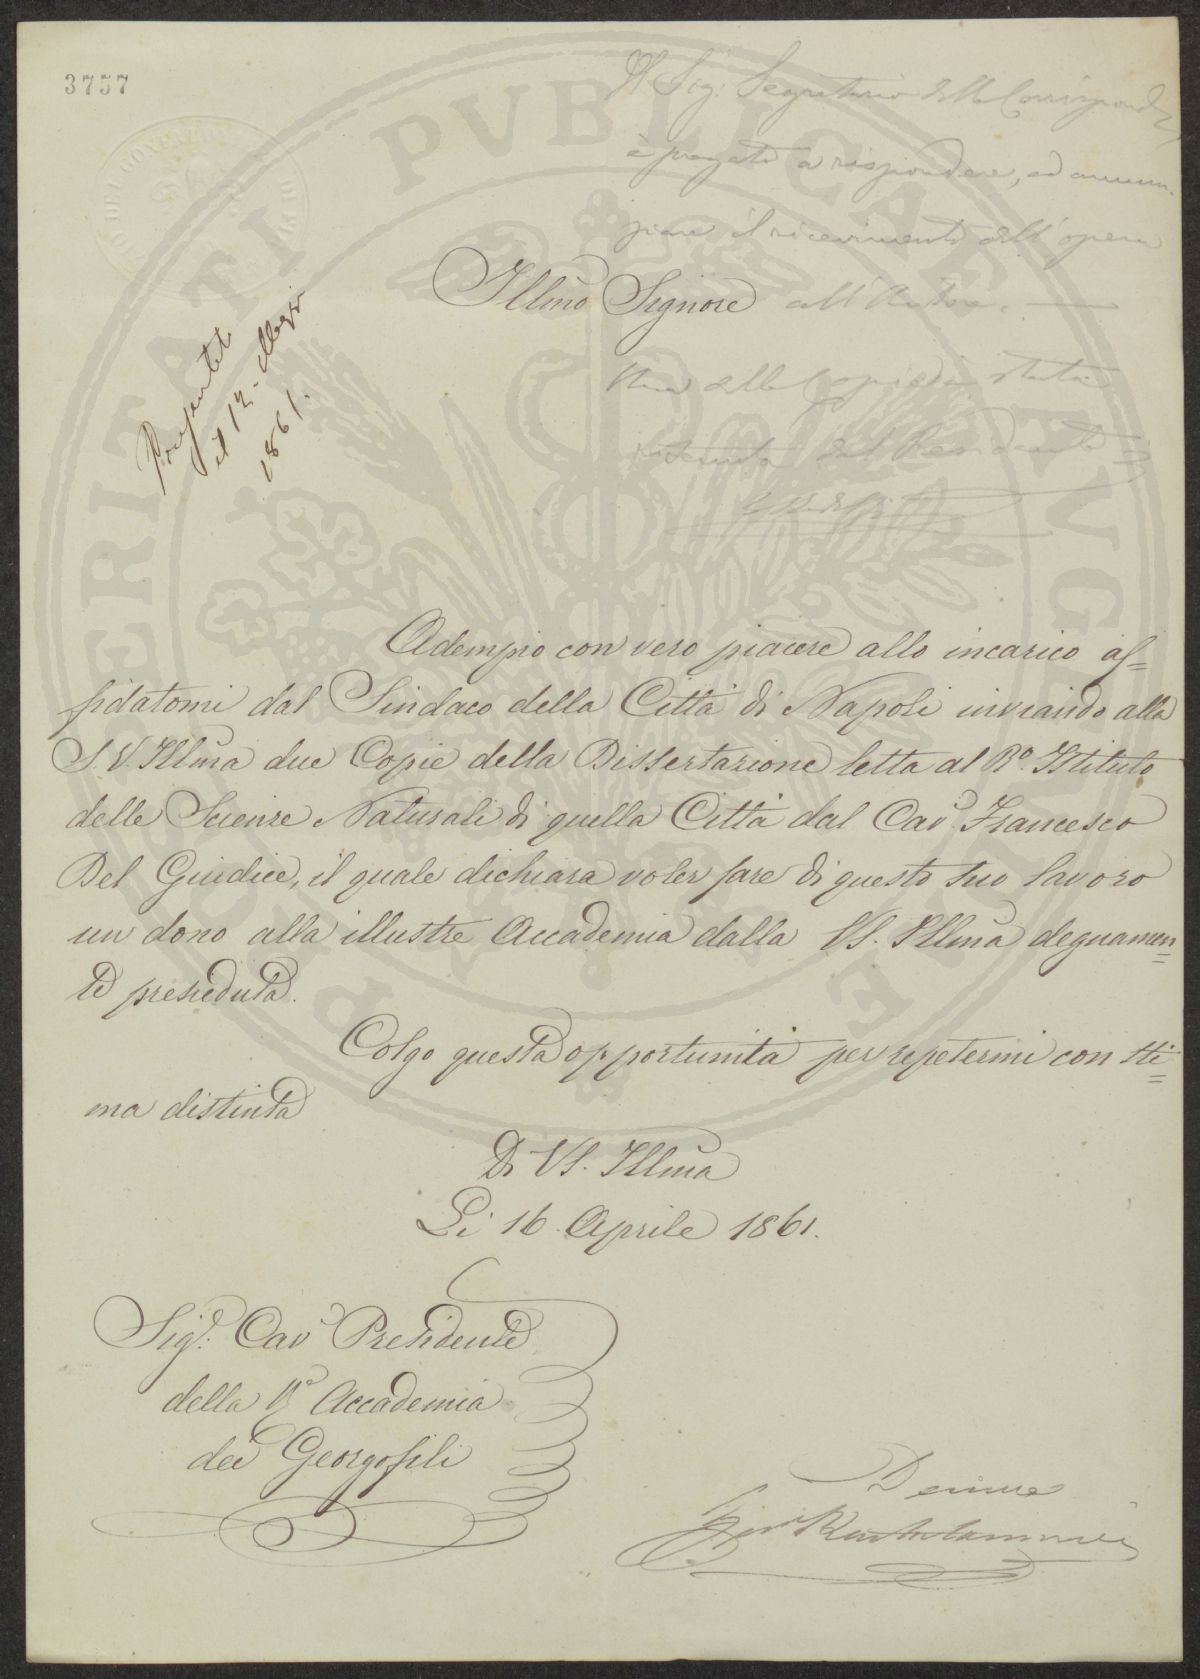 3757
Al Sig: Segretario della Corrispondz
è pregato a rispondere, ed annun-
ziare il ricevimento dell'opera
all'Autore. —
Illmo Signore
Una delle Copie è stata
ritenuta dal Presidente
Presentata
il 12 Maggio
1861.
Adempio con vero piacere allo incarico af=
fidatomi dal Sindaco della Città di Napoli inviando alla
S. V. Illma due Copie della Dissertazione letta al Ro. Istituto
delle Scienze Naturali di quella Città dal Cav. Francesco
Del Giudice, il quale dichiara voler fare di questo suo lavoro
un dono alla illustre Accademia dalla VS. Illma degnamen=
te presieduta.
Colgo questa opportunità per repetermi con sti=
ma distinta
Di VS. Illma
Li 16 Aprile 1861.
Sigr. Cav Presidente
della Ra Accademia
dei Georgofili
Devmo
Bartolommei
PROSPERITATI PVBLICAE AVGENDAE